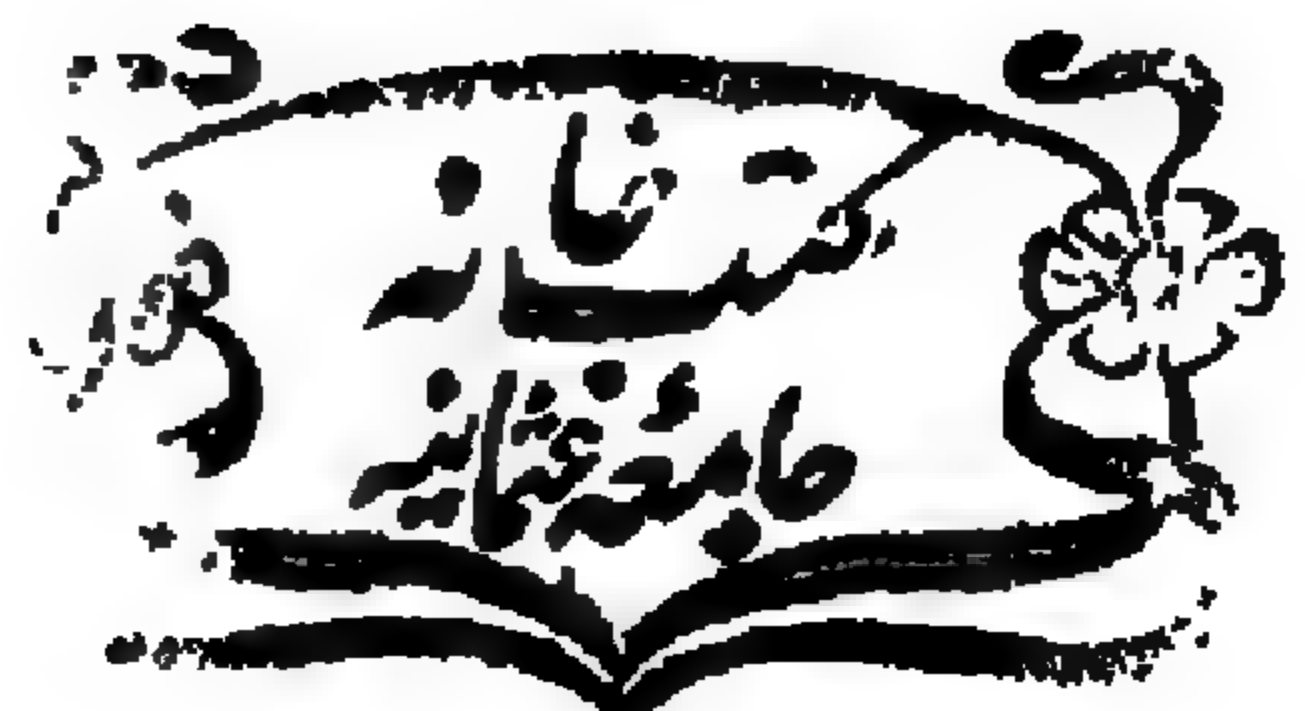 کتب خانہ
جامعۂ عثمانیہ